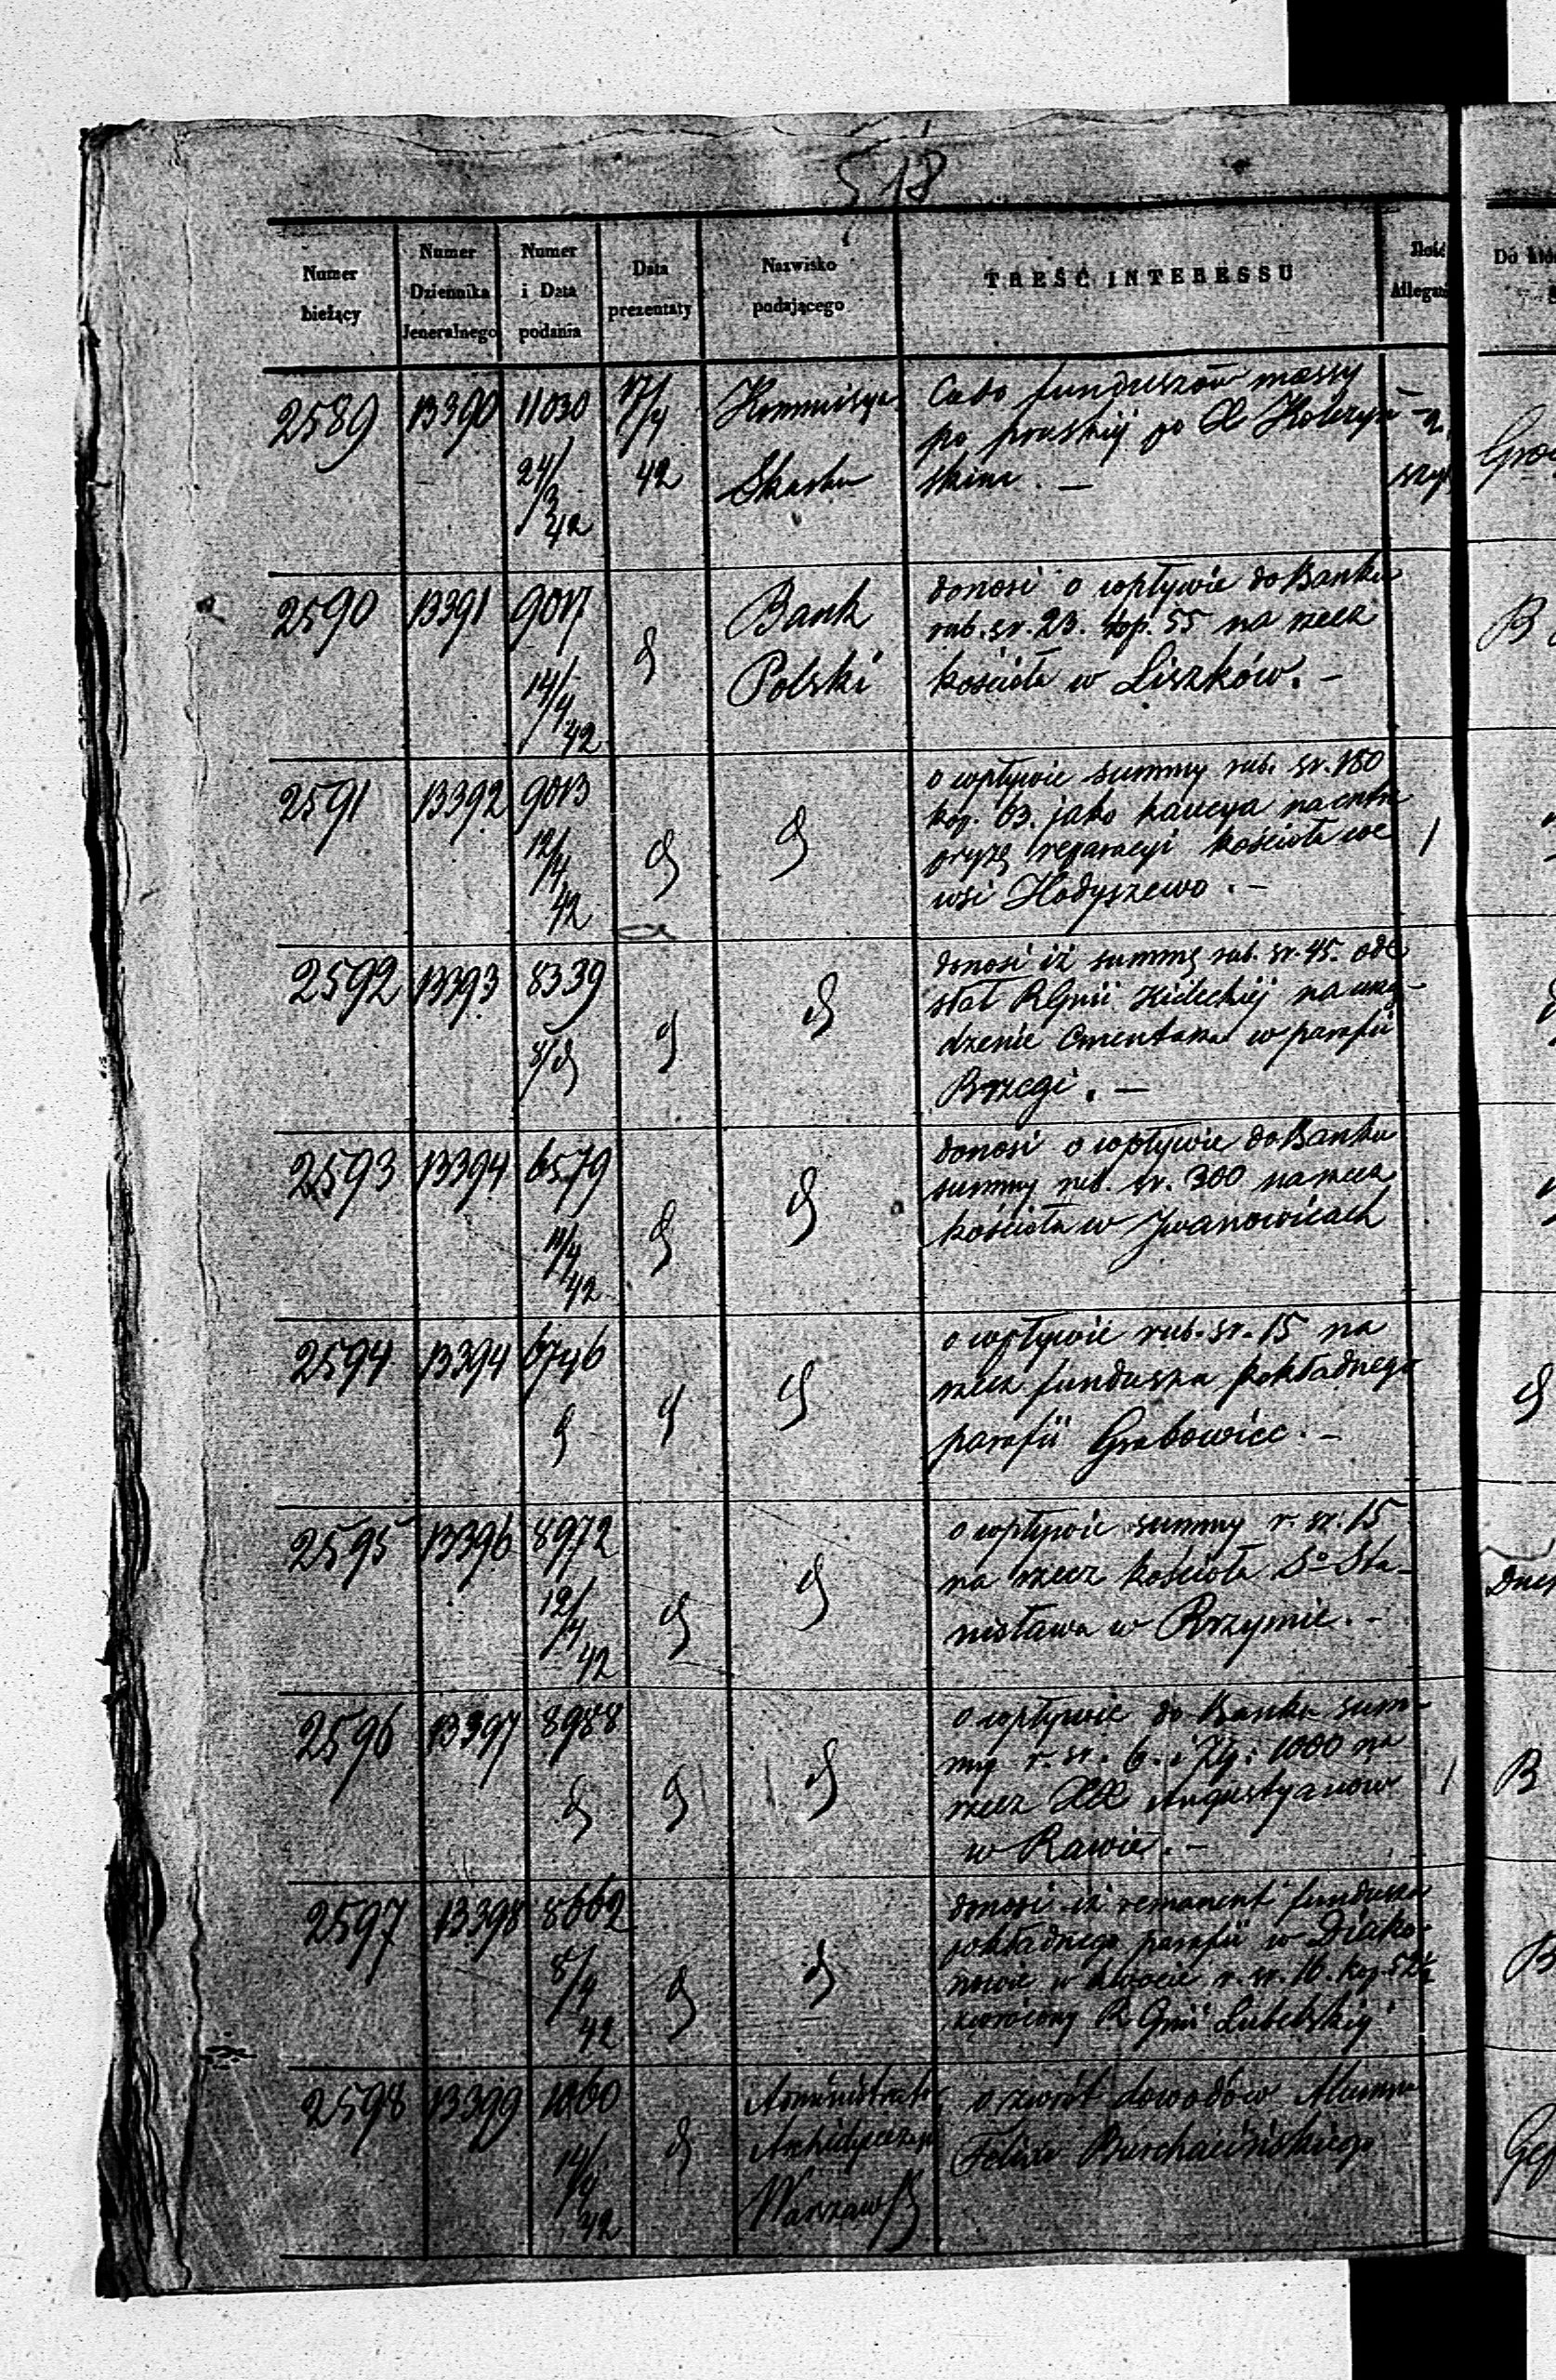 518
Numer bieżący
Numer Dziennika Jeneralnego
Numer i Data podania
Data prezentaty
Nazwisko podającego
TREŚĆ INTERESSU
Ilość Allegat
2589 13390 11030 17/4 Kommissya funduszów massy
po pruskiej po X
24/3 42 42 Skarbu skim. —
2590 13391 9017 Bank donosi o wpływie do Banku
rub. sr. 23. kop. 55 na rzecz
14/4 42 Polski kościoła w Liszków. —
2591 13392 9013 o wpływie summy rub. sr. 180
kop. 63. jako kaucya na entre
12/4 pryzę reparacyi kościoła we 1
42 wsi Hodyszewo. —
2592 13393 8339 donosi iż summę rub. sr. 45. ode
słał RGnii Kieleckiej na urzą-
8/ dzenie Cmentarza w parafii
Brzegi. —
2593 13394 6579 donosi o wpływie do Banku
summy rub. sr. 300 na rzecz
11/4 42 kościoła w Iwanowicach
2594 13394 6746 o wpływie rub. sr. 15 na
rzecz funduszu pokładnego
parafii Grabowiec. —
2595 13396 8972 o wpływie summy r. sr. 15
na rzecz kościoła So Sta-
12/4 42 nisława w Rzymie. —
2596 13397 8988 o wpływie do Banku sum-
my r. sr. 6. i Złp: 1000 na
rzecz XX Augustyanow 1
w Rawie. —
2597 13398 8662 donosi iż remanent funduszu
pokładnego parafii w Diako-
8/4 nowie w kwocie r. sr. 16. kop. 52½
42 zwrócony R Gnii Lubelskiej
2598 13399 1060 Administrator o zwrót dowodów Alumna
14/4 Archidyecezyi Felixa
42 Warszaws